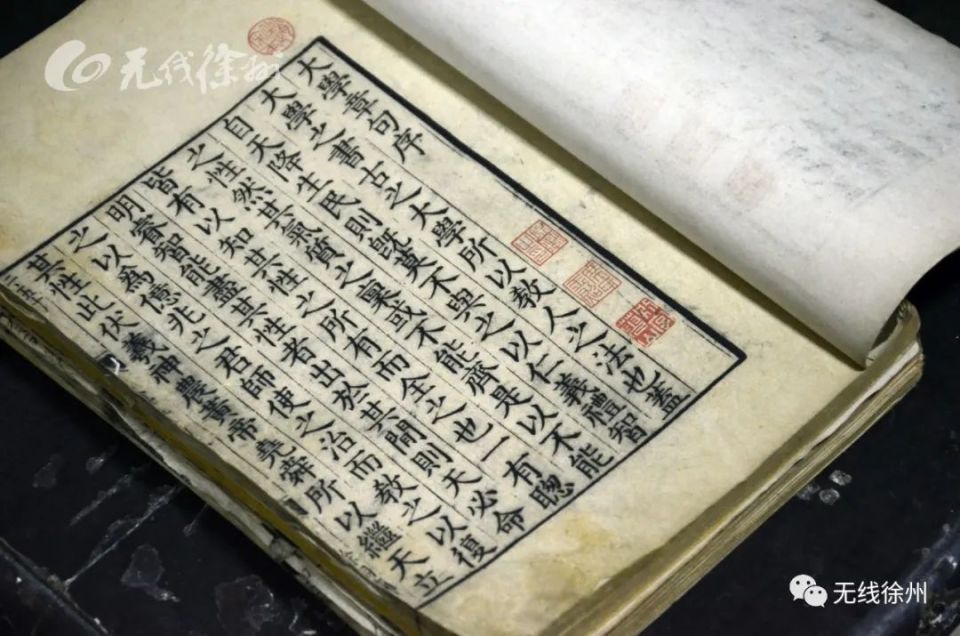 无线徐州
大學章句序
大學之書古之大學所以教人之法也蓋
自天降生民則旣莫不與之以仁義禮智
之性然其氣質之稟或不能齊是以不能
皆有以知其性之所有而全之也一有聰
明睿智能盡其性者出於其間則天必命
之以爲億兆之君師使之治而教之以復
其性此伏羲神農黃帝堯舜所以繼天立
无线徐州